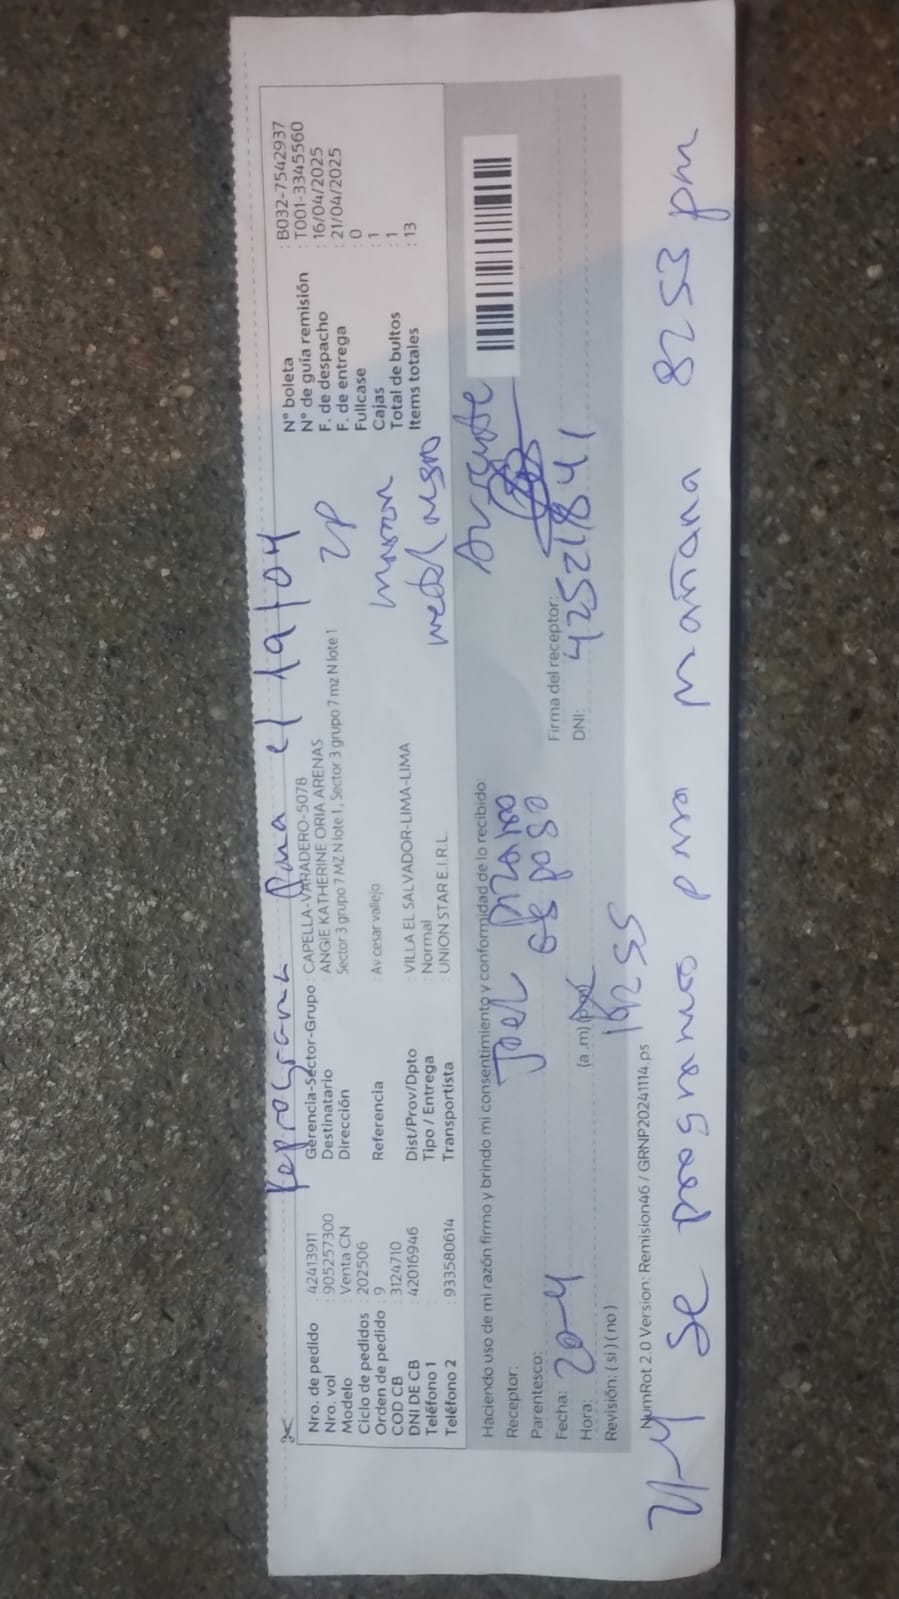 Reprograma para el 19/04
Nro. de pedido : 42413911
Nro. vol : 905257300
Modelo : Venta CN
Ciclo de pedidos : 202506
Orden de pedido : 9
COD CB : 3124710
DNI DE CB : 42016946
Teléfono 1
Teléfono 2 : 933580614
Gerencia-Sector-Grupo : CAPELLA-VARADERO-5078
Destinatario : ANGIE KATHERINE ORIA ARENAS
Dirección : Sector 3 grupo 7 MZ N lote 1, Sector 3 grupo 7 mz N lote 1
Referencia : Av cesar vallejo
Dist/Prov/Dpto : VILLA EL SALVADOR-LIMA-LIMA
Tipo / Entrega : Normal
Transportista : UNION STAR E.I.R.L.
N° boleta : B032-7542937
N° de guía remisión : T001-3345560
F. de despacho : 16/04/2025
F. de entrega : 21/04/2025
Fullcase : 0
Cajas : 1
Total de bultos : 1
Items totales : 13
2P
marron
metal negro
Haciendo uso de mi razón firmo y brindo mi consentimiento y conformidad de lo recibido
Receptor: Joel
Parentesco: esposo
Fecha: 20-4
Hora: (a .m) (p.m)
Revisión: ( si ) ( no )
Ausente
Firma del receptor:
DNI: 42521841
NumRot 2.0 Version: Remision46 / GRNP20241114.ps
21-4 Se programo pra mañana 8:53 pm